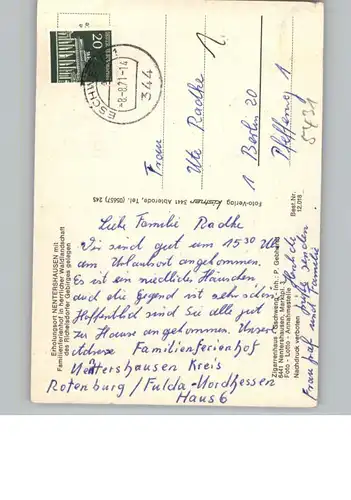 20
ESCHW
-8.-8.71-14
344
Frau
Ute Radtke
1 Berlin 20
Pfefferweg 1
5431
Foto-Verlag Kästner 3441 Abterode, Tel. (05657) 243
Best.Nr. 12,018
Erholungsort NENTERSHAUSEN mit
Familienferienhof in herrlicher Waldlandschaft
des Richelsdorfer Gebirges gelegen
Liebe Familie Radtke
Wir sind gut um 15 30 Uhr
am Urlaubsort angekommen.
Es ist ein niedliches Häuschen
und die Gegend ist sehr schön.
Hoffentlich sind Sie alle gut
zu Hause angekommen. Unsere
Adresse Familienferienhof
Nentershausen Kreis
Rotenburg/Fulda-Nordhessen
Haus 6
Herzliche
Grüße senden
Frau und Familie
Zigarrenhaus Gschweng - Inh.: P.
6441 Nentershausen, Marktpl. 3
Foto - Lotto - Annahmestelle
Nachdruck verboten